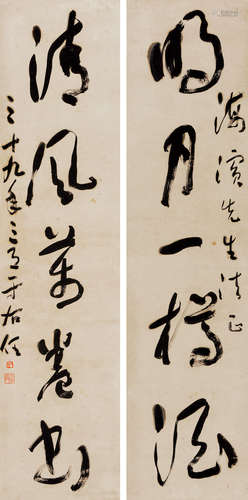 明月一樽酒
海濱先生法正
清風萬卷書
三十九年三月于右任